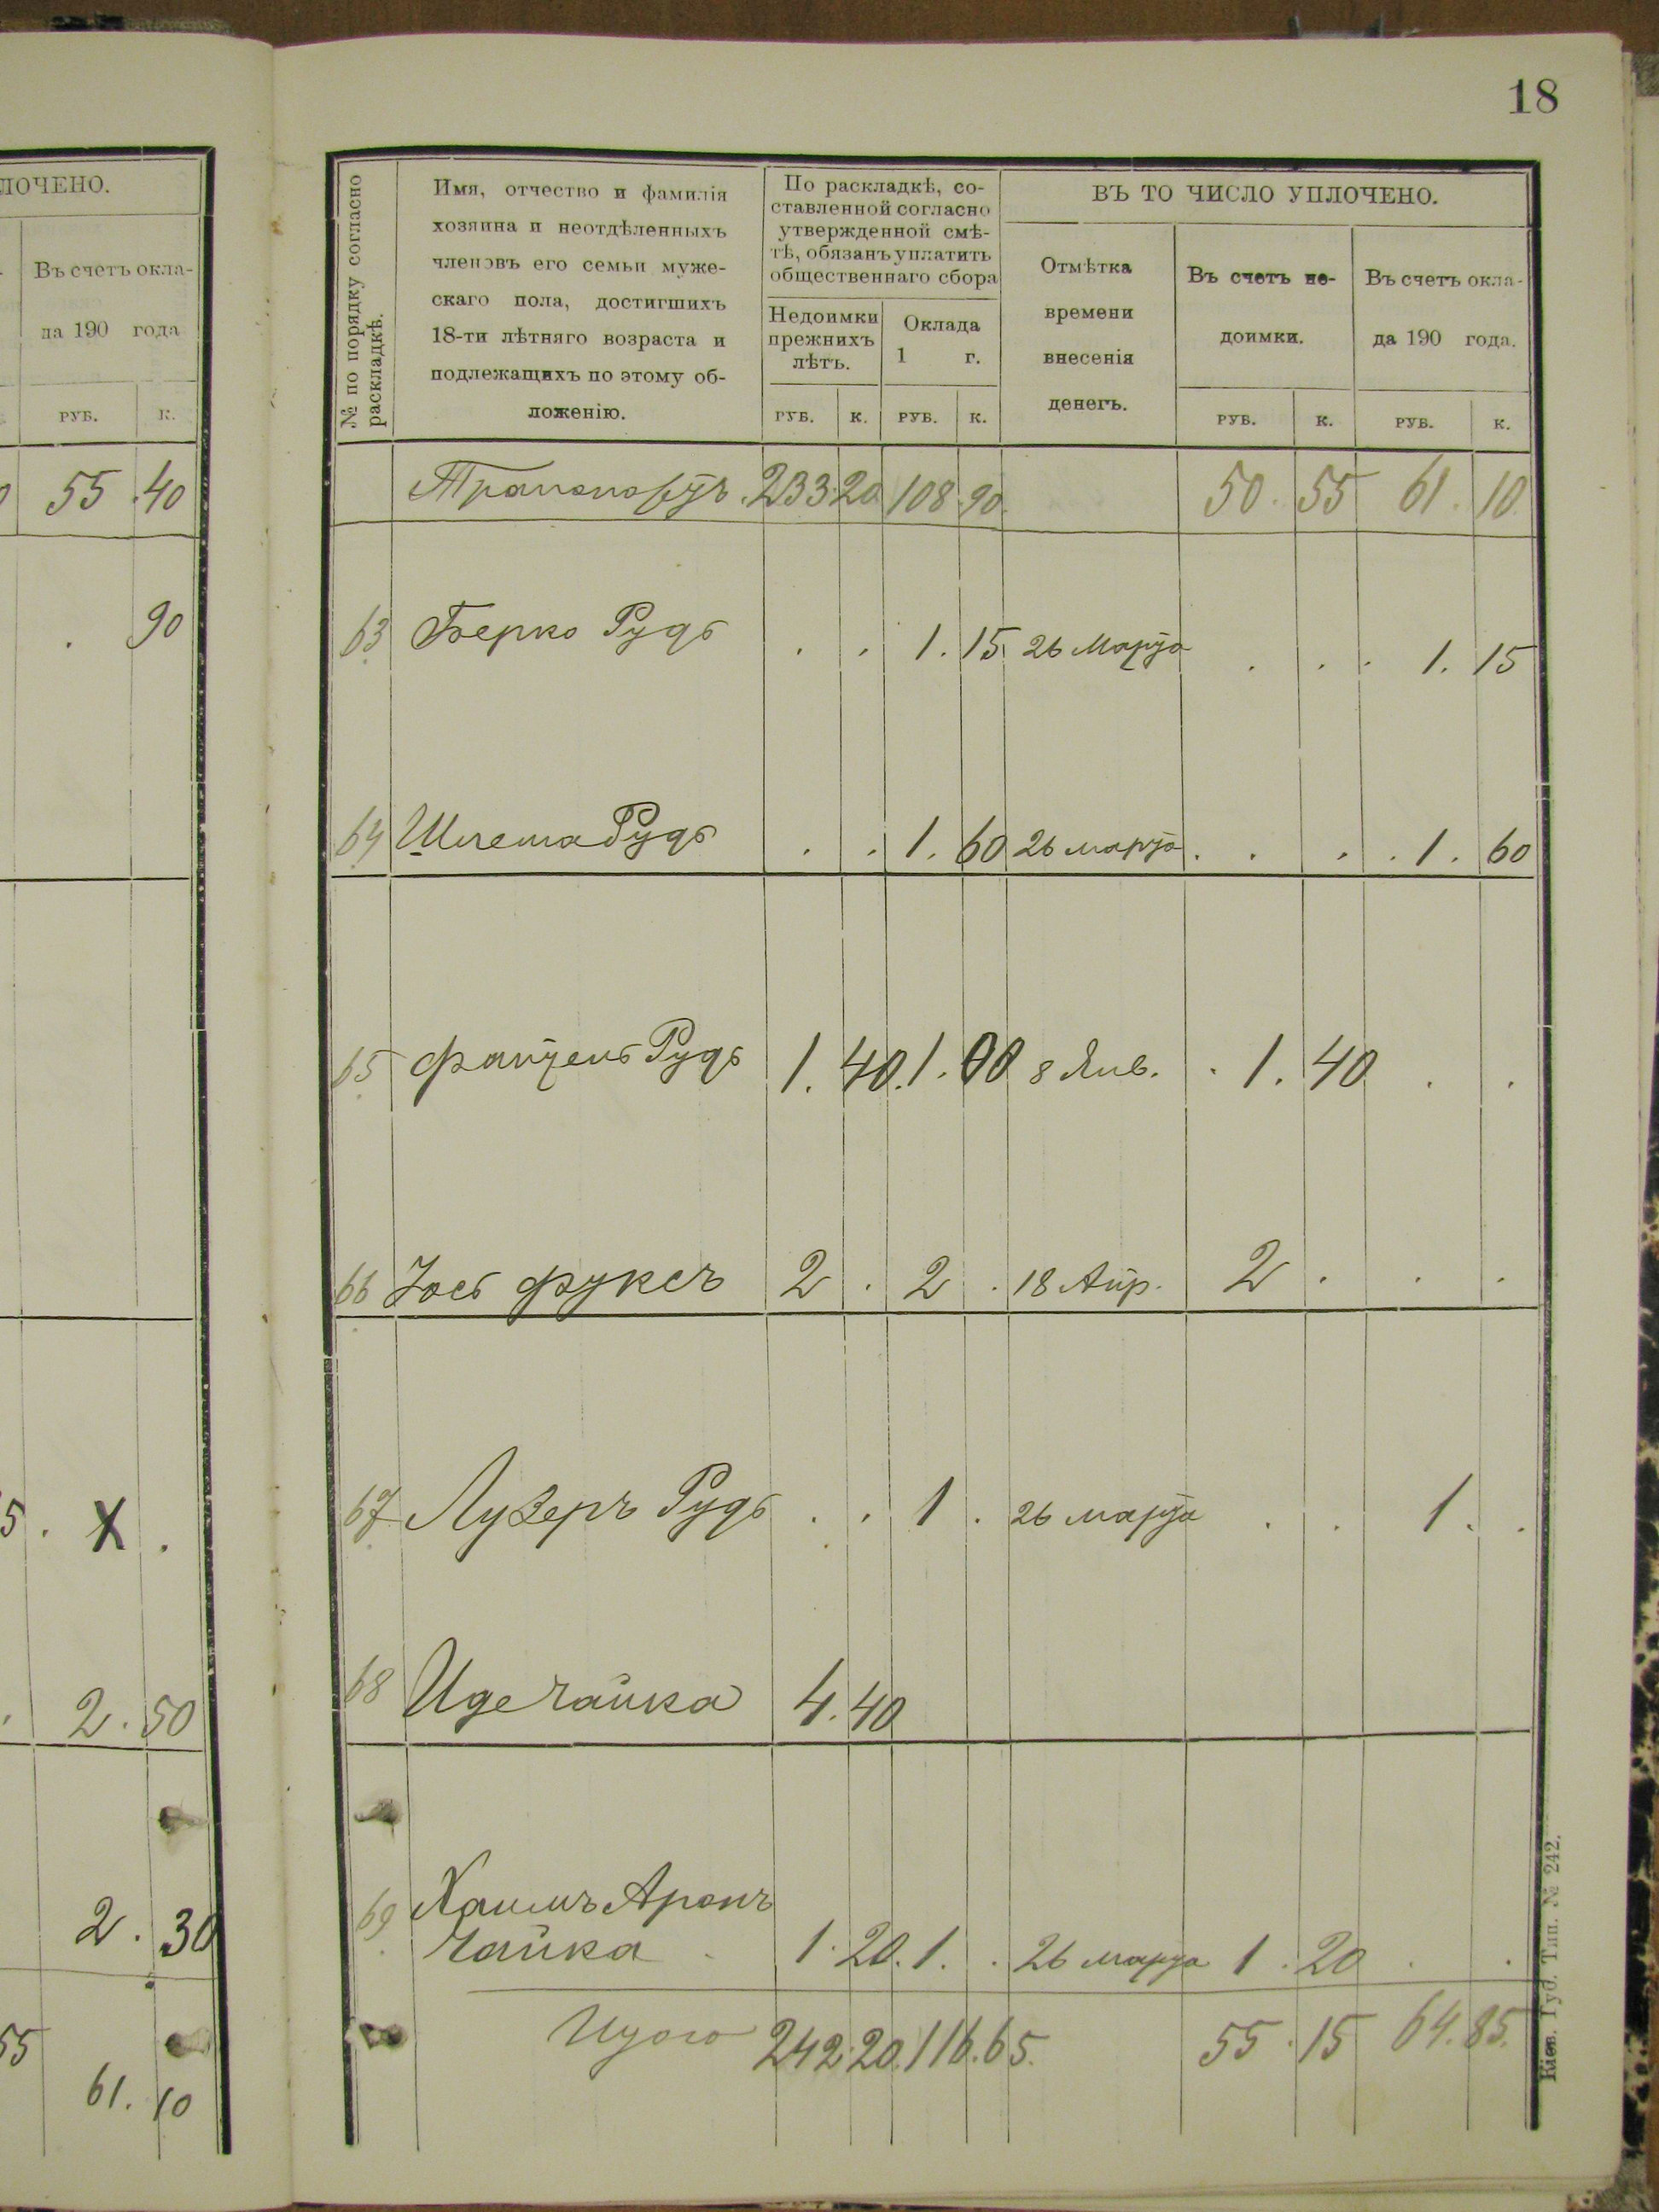 18
ЛОЧЕНО.
Въ счетъ окла-
да 190 года
РУБ. К.
55 40
. 90
5 . X .
2 . 50
2 . 30
55
61 . 10
№ по порядку согласно
раскладкѣ.
Имя, отчество и фамилія
хозяина и неотдѣленныхъ
членовъ его семьи муже-
скаго пола, достигшихъ
18-ти лѣтняго возраста и
подлежащихъ по этому об-
ложенію.
По раскладкѣ, со-
ставленной согласно
утвержденной смѣ-
тѣ, обязанъ уплатить
общественнаго сбора
Недоимки
прежнихъ
лѣтъ.
Оклада
1 г.
ВЪ ТО ЧИСЛО УПЛОЧЕНО.
Отмѣтка
времени
внесенія
денегъ.
Въ счетъ не-
доимки.
Въ счетъ окла-
да 190 года.
РУБ. К. РУБ. К. РУБ. К. РУБ. К.
Транспортъ 233 20 108 90 50 55 61 10
63 Берко Рудь . . 1. 15 26 Марта . . . 1. 15
64 Шлема Рудь . . 1. 60 26 марта . . . . 1. 60
65 Файтель Рудь 1. 40. 1. 00 8 Янв. . 1. 40 . .
66 Іось Фуксъ 2 . 2 . 18 Апр. 2 . . .
67 Лузеръ Рудь . . 1 . 26 марта . . 1 . .
68 Иде Чайка 4. 40
69 Хаимъ Аронъ
Чайка . 1. 20. 1. . 26 марта 1 . 20 . .
Итого 242. 20. 116. 65. 55 . 15 64. 85.
Кіев. Губ. Тип. № 242.